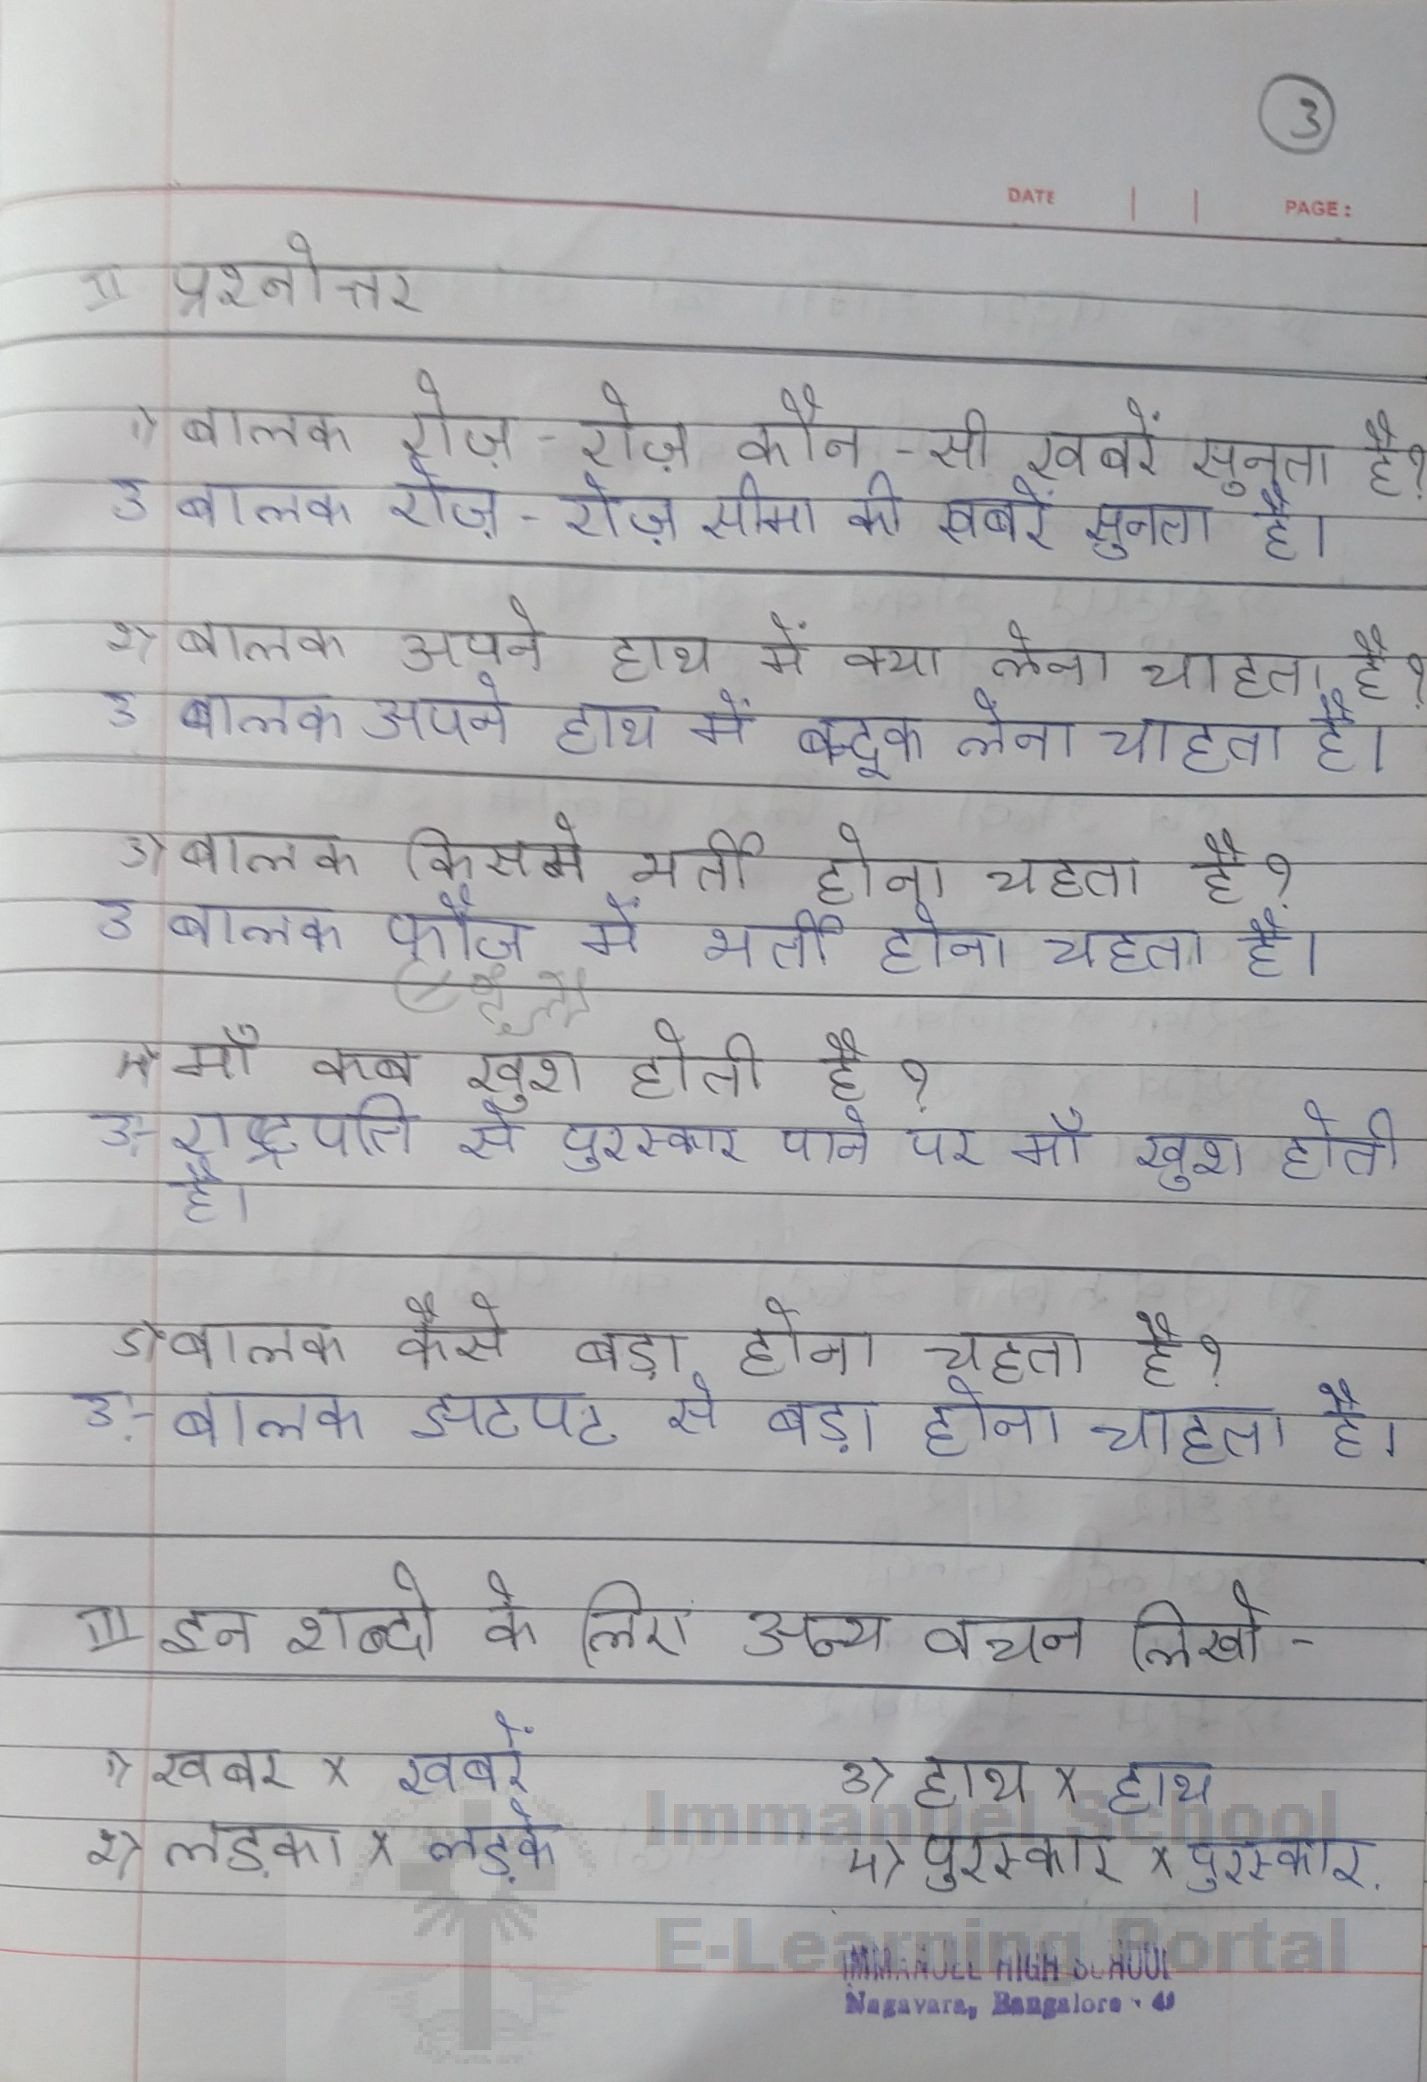 3
DATE | | PAGE:
II प्रश्नोत्तर
1) बालक रोज़ - रोज़ कौन - सी खबरें सुनता है?
उ बालक रोज़ - रोज़ सीमा की खबरें सुनता है।
2) बालक अपने हाथ में क्या लेना चाहता है?
उ बालक अपने हाथ में बन्दूक लेना चाहता है।
3) बालक किसमे भर्ती होना चहता है?
उ बालक फौज में भर्ती होना चहता है।
4) माँ कब खुश होती है?
उ:- राष्ट्रपति से पुरस्कार पाने पर माँ खुश होती
है।
5) बालक कैसे बड़ा होना चहता है?
उ:- बालक झटपट से बड़ा होना चाहता है।
III इन शब्दो के लिए अन्य वचन लिखो -
1) खबर x खबरें 3) हाथ x हाथ
2) लड़का x लड़के 4) पुरस्कार x पुरस्कार.
Immanuel School
E-Learning Portal
IMMANUEL HIGH SCHOOL
Nagavara, Bangalore - 45